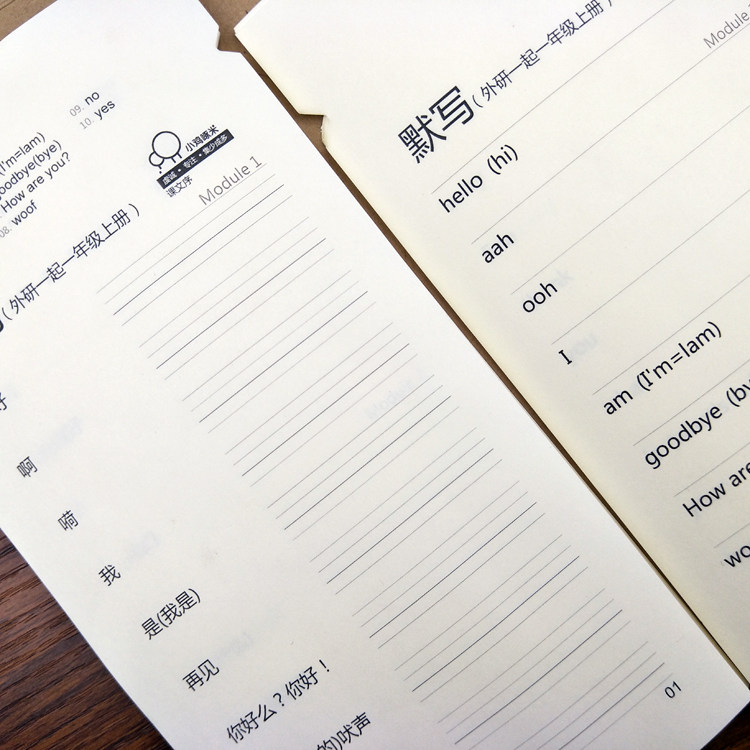 09. no
10. yes
(I'm=Iam)
goodbye(bye)
How are you?
08. woof
小鸡啄米
虔诚 · 专注 · 集少成多
课文序
Module 1
(外研一起一年级上册)
啊
嗬
我
是(我是)
再见
你好么?你好!
的)吠声
01
Module
默写(外研一起一年级上册)
hello (hi)
aah
ooh
I
am (I'm=Iam)
goodbye (by
How are
wo